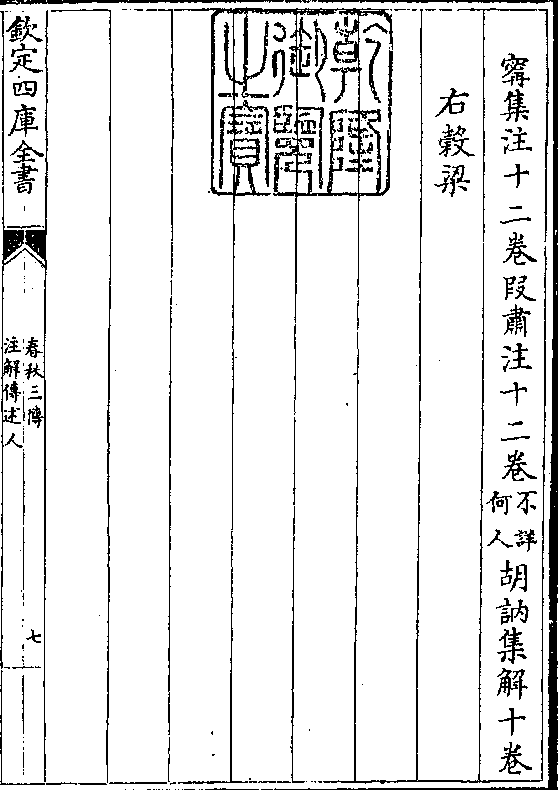 甯集注十二卷段肅注十二卷不詳何人胡訥集解十卷
右穀梁
乾隆御覽之寶
欽定四庫全書
春秋三傳
注解傳述人
七